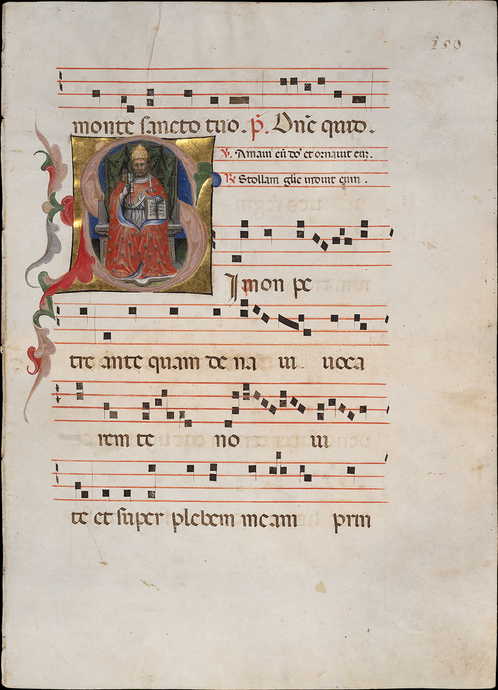 150
monte sancto tuo. P. Dñe quid.
V. Amavit eū dō et ornavit eū.
R. Stollam glīe induit eum.
Simon pe
tre ante quam de na vi voca
rem te no vi
te et super plebem meam prin